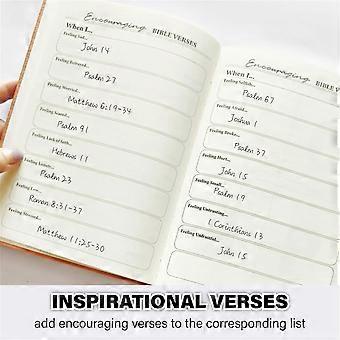 Encouraging
BIBLE VERSES
When I...
Feeling Sad...
John 14
Feeling Betrayed...
Psalm 27
Feeling Worried...
Matthew 6:19-34
Feeling Scared...
Psalm 91
Feeling Lack of faith...
Hebrews 11
Psalm 23
Feeling Low...
Roman 8:31-37
Feeling Stressed...
Matthew 11:25-30
Encouraging
BIBLE VERSES
When I...
Feeling Selfish...
Psalm 67
Feeling Afraid...
Joshua 1
Feeling Broke...
Psalm 37
Feeling Hurt...
John 15
Feeling Small...
Psalm 19
Feeling Untrusting...
1 Corinthians 13
Feeling Unfruitful...
John 15
INSPIRATIONAL VERSES
add encouraging verses to the corresponding list